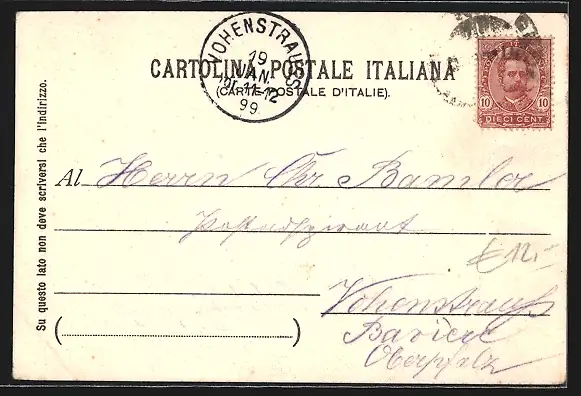 CARTOLINA POSTALE ITALIANA
(CARTE POSTALE D'ITALIE).
VOHENSTRAUSS
19
JAN.
11-12
99
10 10
DIECI CENT.
Su questo lato non deve scriversi che l'indirizzo.
Al Herrn Chr Bamler
Postadspirant
€ 12,-
Vohenstrauß
Baviere
Oberpfalz